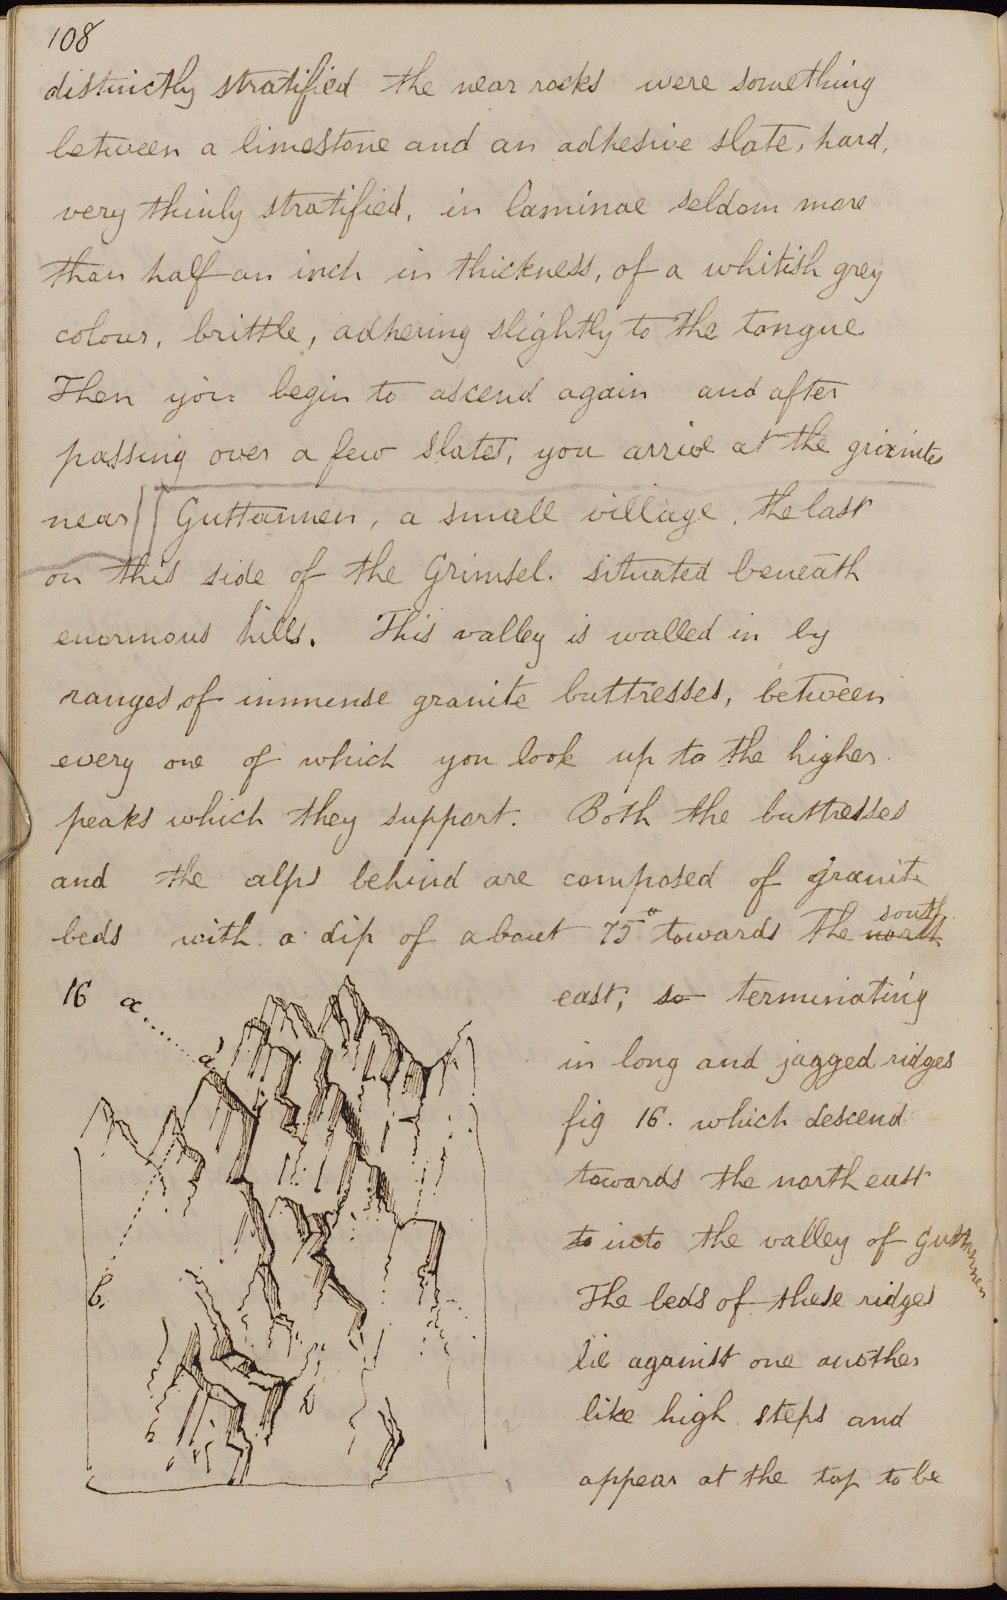 108
distinctly stratified the near rocks were something
between a limestone and an adhesive slate, hard,
very thinly stratified, in laminae seldom more
than half an inch in thickness, of a whitish grey
colour, brittle, adhering slightly to the tongue
Then you begin to ascend again and after
passing over a few slates, you arrive at the granite
near Guttannen, a small village, the last
on this side of the Grimsel. situated beneath
enormous hills. This valley is walled in by
ranges of immense granite buttresses, between
every one of which you look up to the higher
peaks which they support. Both the buttresses
and the alps behind are composed of granite
beds with a dip of about 75° towards the north south
east, so terminating
in long and jagged ridges
fig 16. which descend
towards the north east
to into the valley of Guttannen
The beds of these ridges
lie against one another
like high steps and
appear at the top to be
16 a
a'
b.